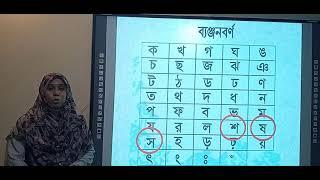 ব্যঞ্জনবর্ণ
ক খ গ ঘ ঙ
চ ছ জ ঝ ঞ
ট ঠ ড ঢ ণ
ত থ দ ধ ন
প ফ ব ভ ম
য র ল শ ষ
স হ ড় ঢ় য়
ৎ ং ঃ ঁ